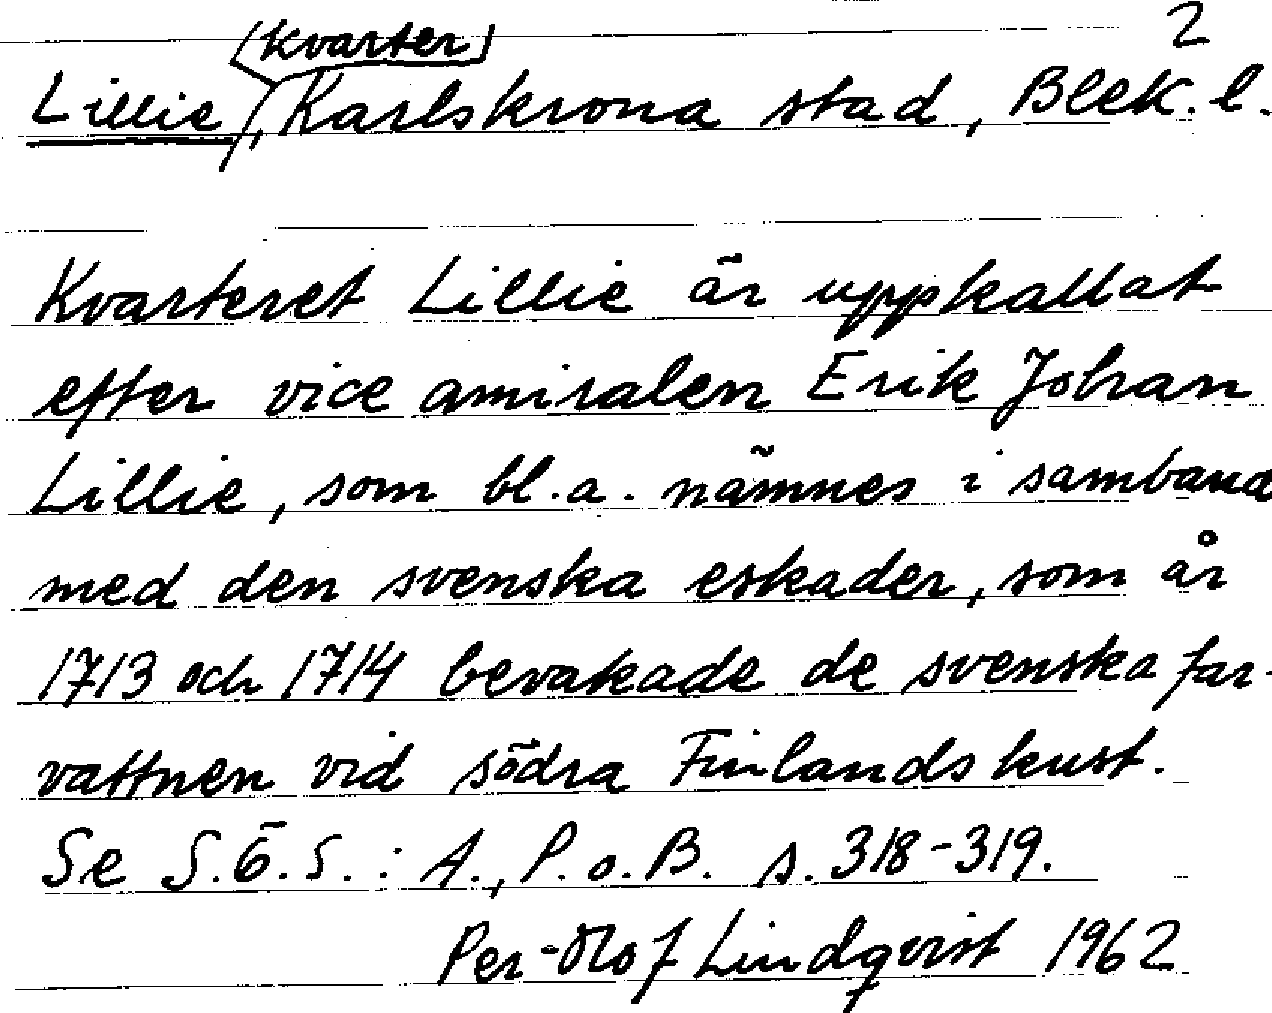 2
(kvarter)
Lillie, Karlskrona stad, Blek. l.
Kvarteret Lillie är uppkallat
efter vice amiralen Erik Johan
Lillie, som bl.a. nämnes i samband
med den svenska eskader, som år
1713 och 1714 bevakade de svenska far-
vattnen vid södra Finlands kust.
Se S.Ö.S. : A., P. o. B. s. 318-319.
Per-Olof Lindqvist 1962